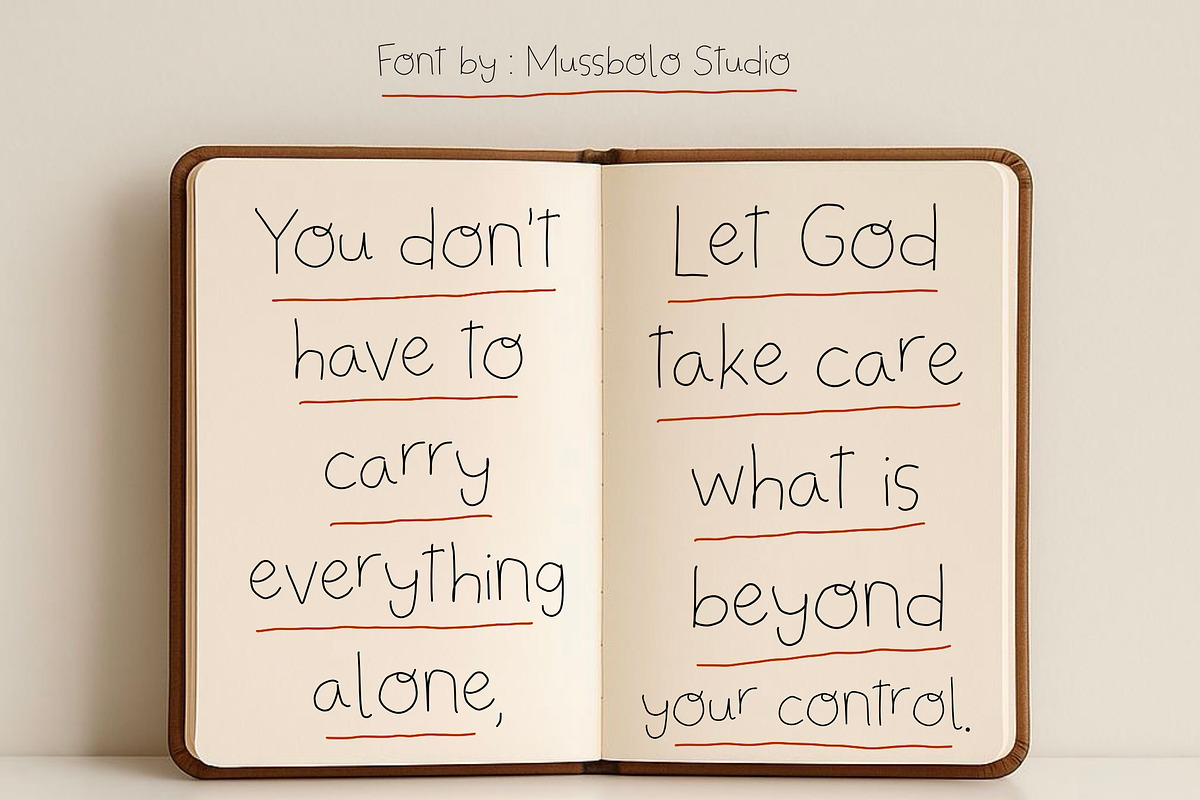 Font by : Mussbolo Studio
You don't
have to
carry
everything
alone,
Let God
take care
what is
beyond
your control.